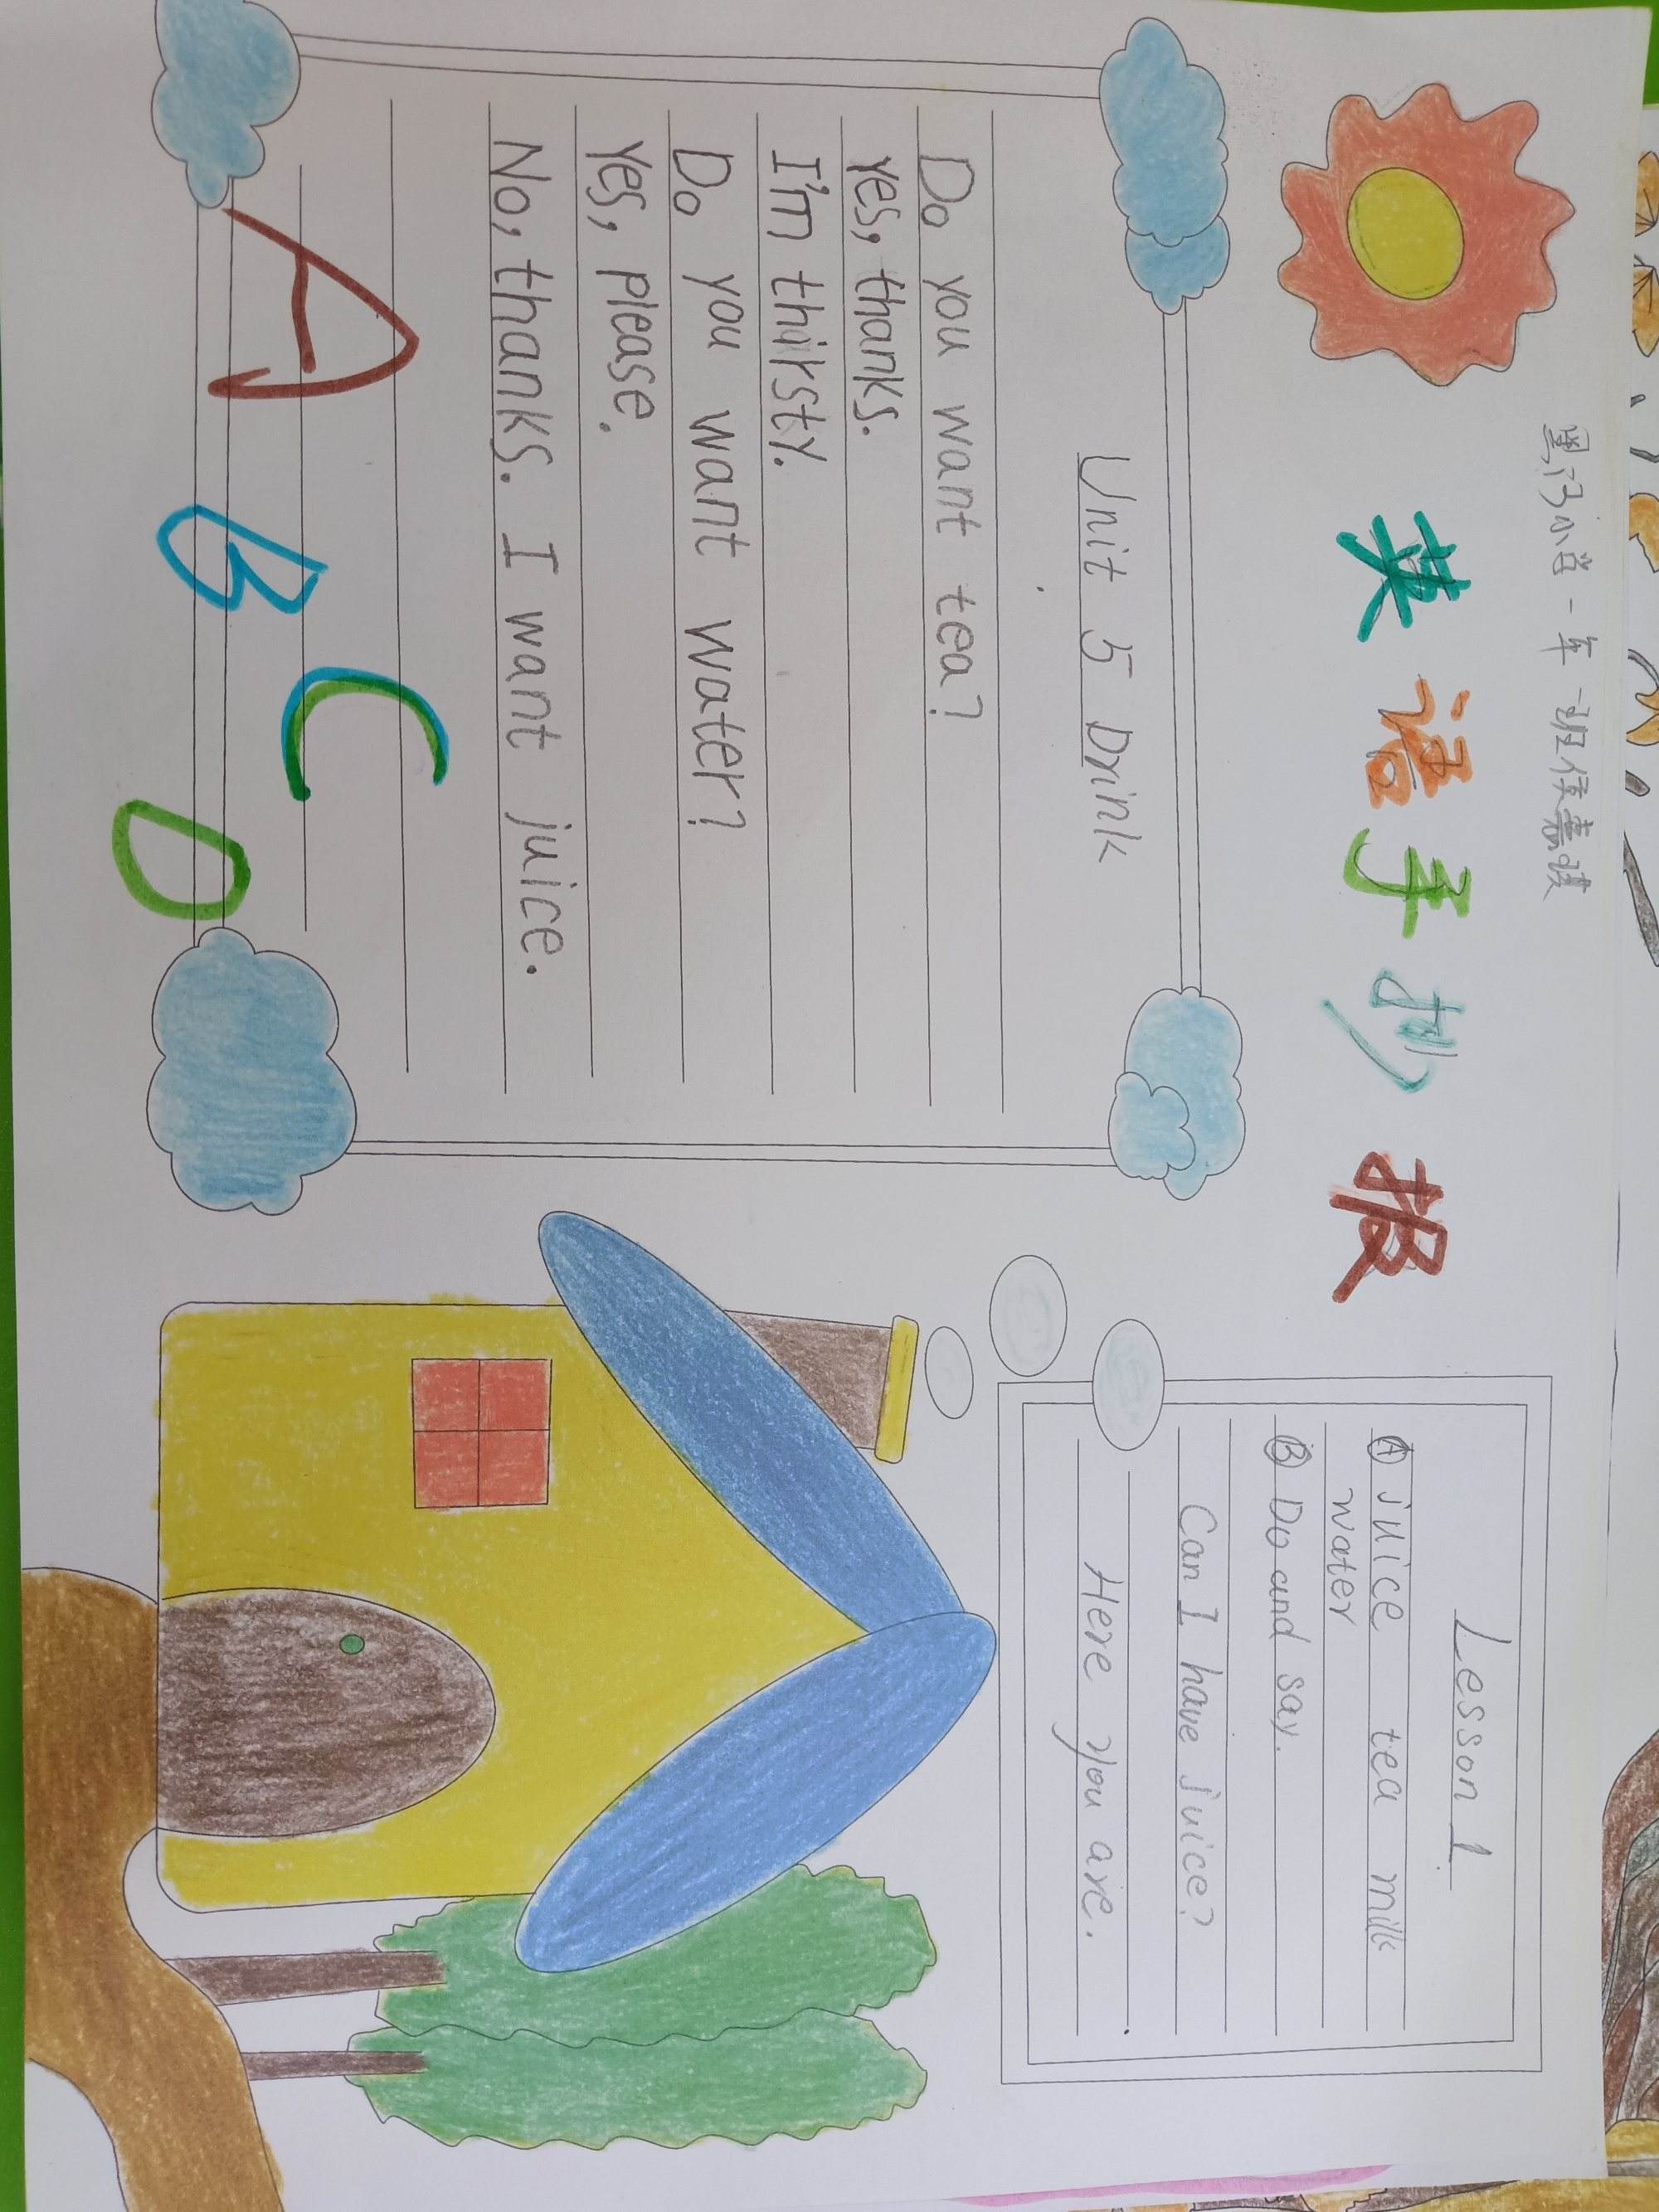 小学一年一班侯嘉琪
英语手抄报
Unit 5 Drink
Do you want tea?
Yes, thanks.
I'm thirsty.
Do you want water?
Yes, please.
No, thanks. I want juice.
A B C D
Lesson 1
Ⓐ juice tea milk
water
Ⓑ Do and say.
Can I have juice?
Here you are.